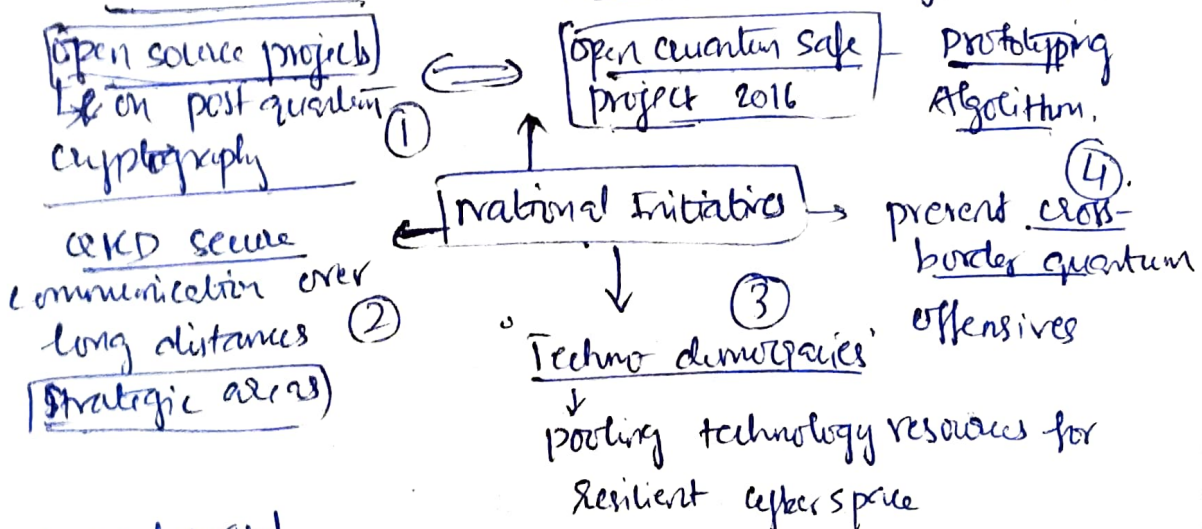 open source projects
Ly on post quantum
cryptography
①
open quantum safe
project 2016
Prototypping
Algorithm.
National Initiatives
QKD secure
communication over
long distances ②
strategic areas
③
'Techno democracies'
↓
pooling technology resources for
resilient cyber space
④.
prevent cross-
border quantum
offensives